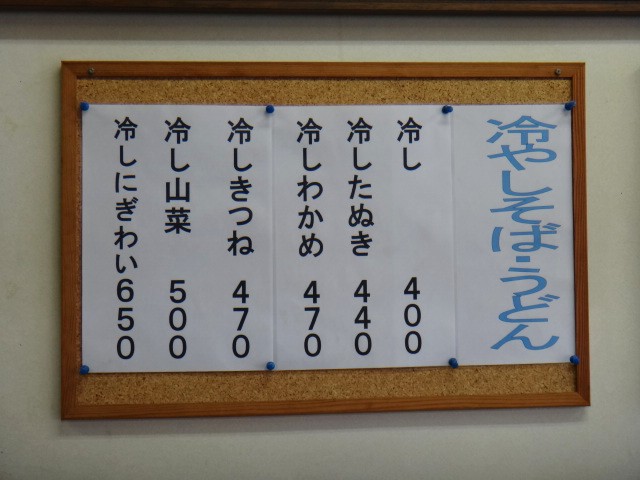 冷やしそば・うどん
冷し 400
冷したぬき 440
冷しわかめ 470
冷しきつね 470
冷し山菜 500
冷しにぎわい 650